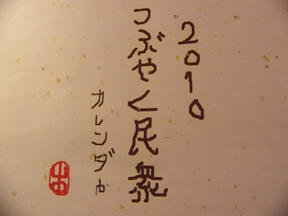 2010
つぶやく民衆
カレンダー